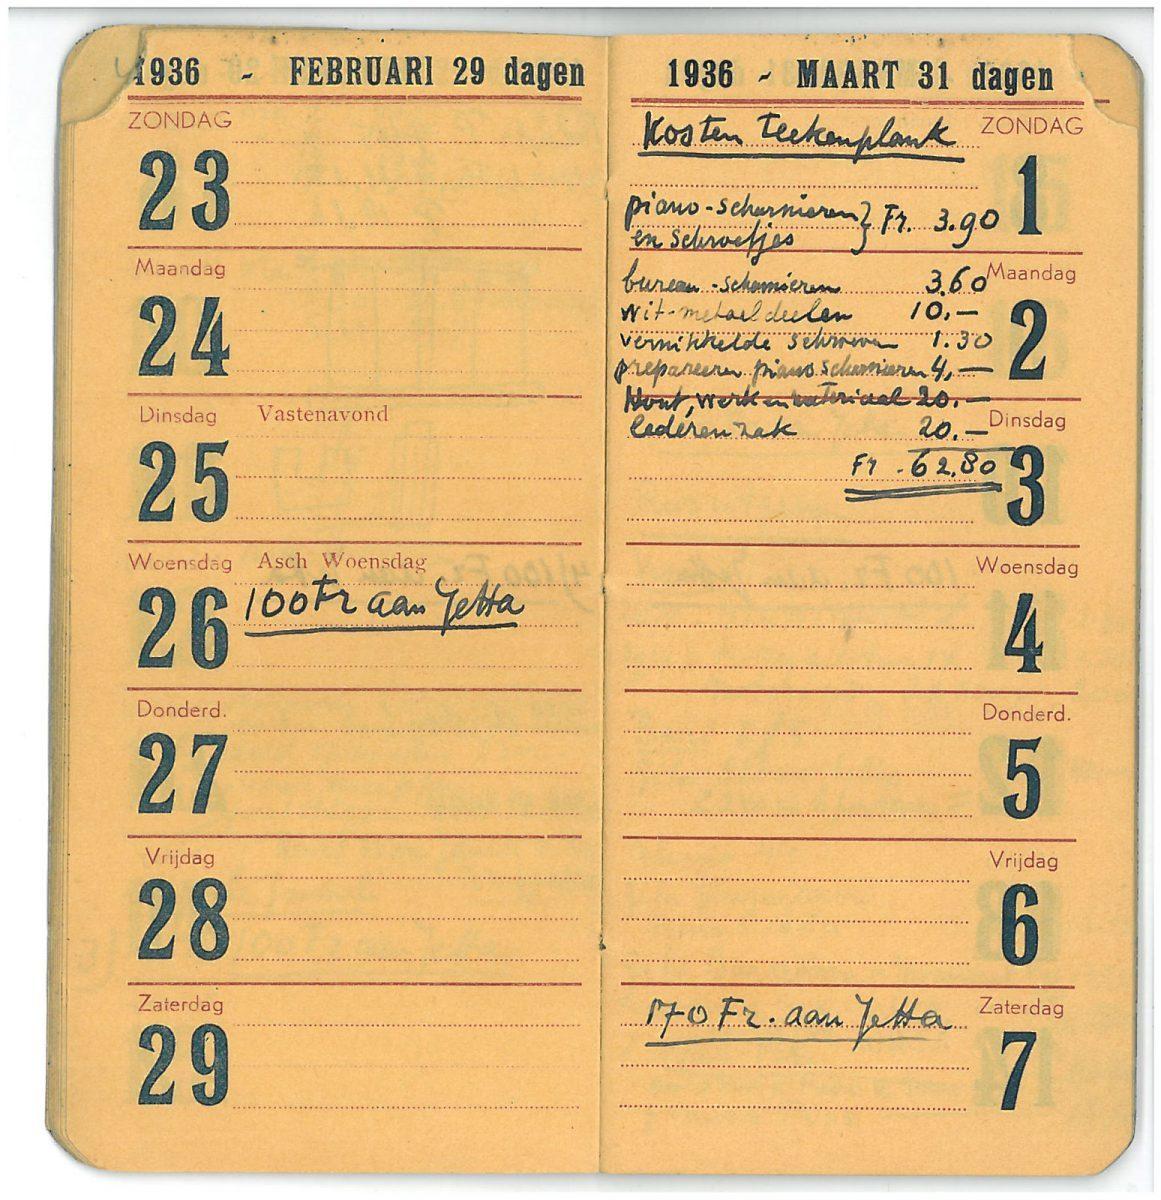 1936 - FEBRUARI 29 dagen
ZONDAG
23
Maandag
24
Dinsdag Vastenavond
25
Woensdag Asch Woensdag
26 100 Fr aan Jetta
Donderd.
27
Vrijdag
28
Zaterdag
29
1936 - MAART 31 dagen
Kosten Teekenplank ZONDAG
1
piano-scharnieren } Fr. 3.90
en schroefjes
Maandag
bureau-scharnieren 3.60
2
wit-metaal deelen 10,-
vernikkelde schroeven 1.30
prepareeren piano scharnieren 4,-
Hout, werk en materiaal 20.-
Dinsdag
lederen zak 20.-
Fr. 62.80
3
Woensdag
4
Donderd.
5
Vrijdag
6
170 Fr. aan Jetta Zaterdag
7